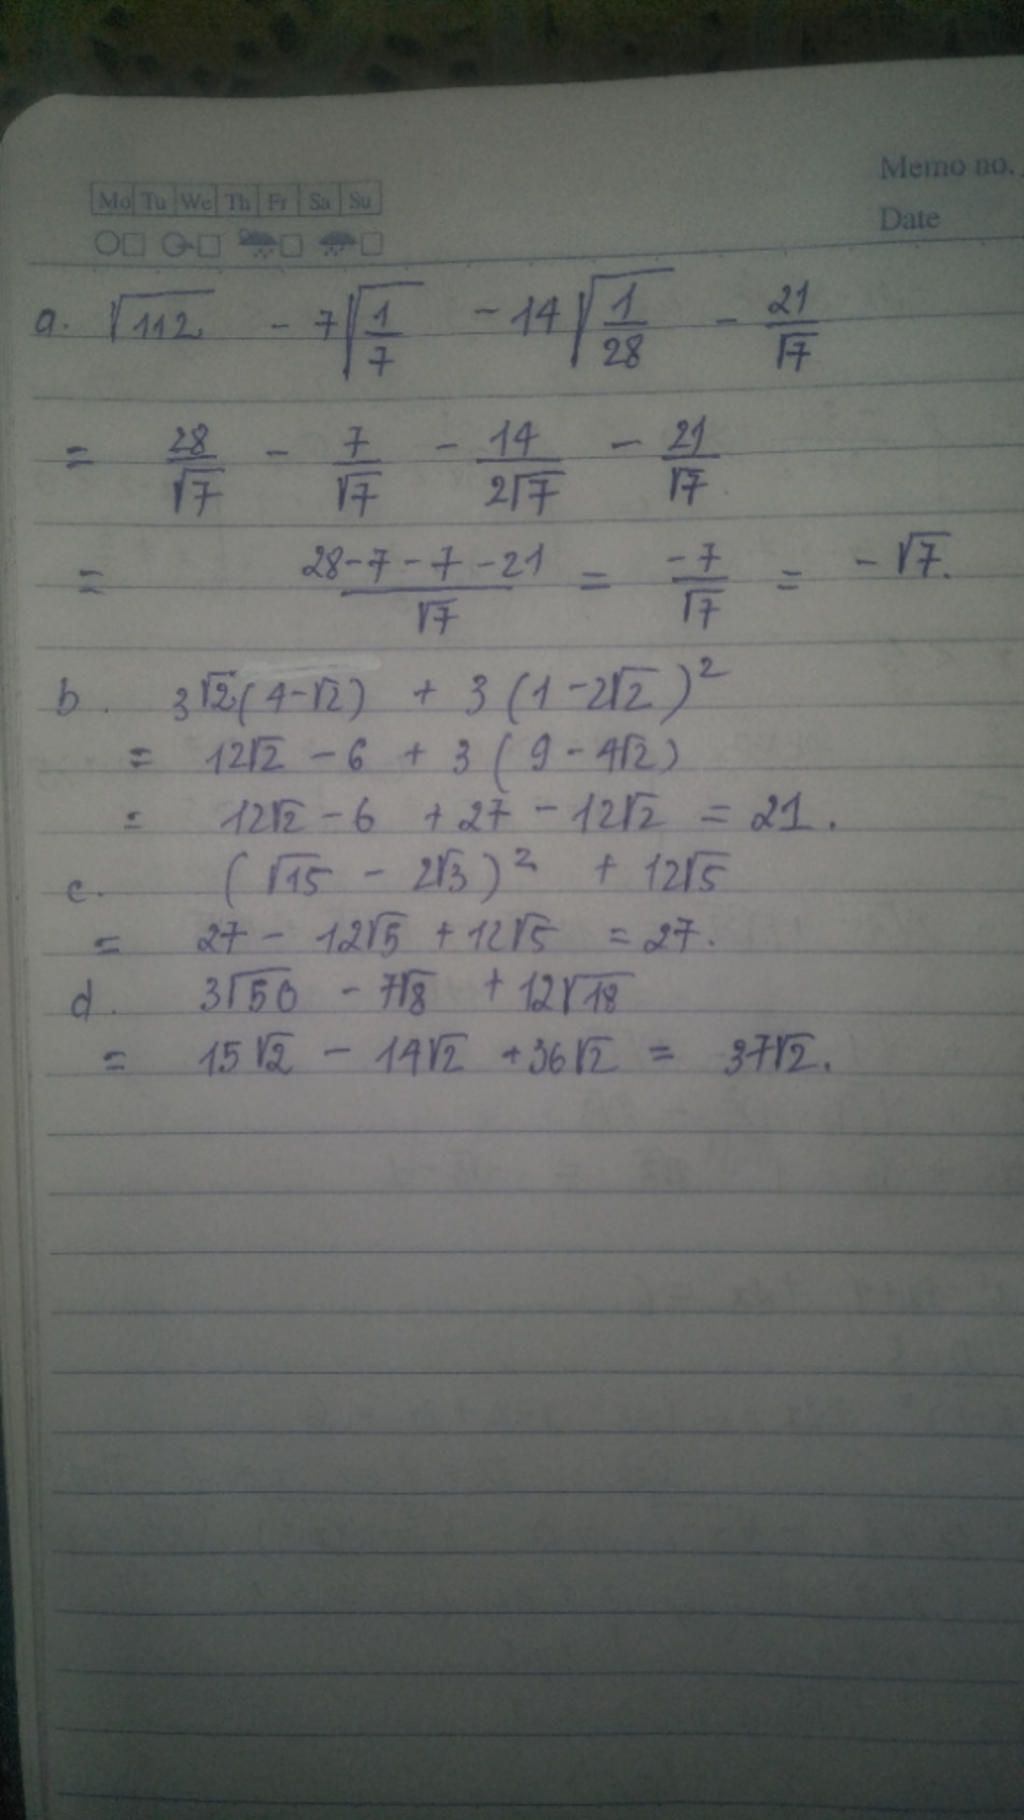 Memo no.
Mo Tu We Th Fr Sa Su
Date
a. √112 - 7√(1/7) - 14√(1/28) - 21/√7
= 28/√7 - 7/√7 - 14/2√7 - 21/√7
= (28-7-7-21)/√7 = -7/√7 = -√7.
b. 3√2(4-√2) + 3(1-2√2)²
= 12√2 - 6 + 3(9-4√2)
= 12√2 - 6 + 27 - 12√2 = 21.
c. (√15 - 2√3)² + 12√5
= 27 - 12√5 + 12√5 = 27.
d. 3√50 - 7√8 + 12√18
= 15√2 - 14√2 + 36√2 = 37√2.